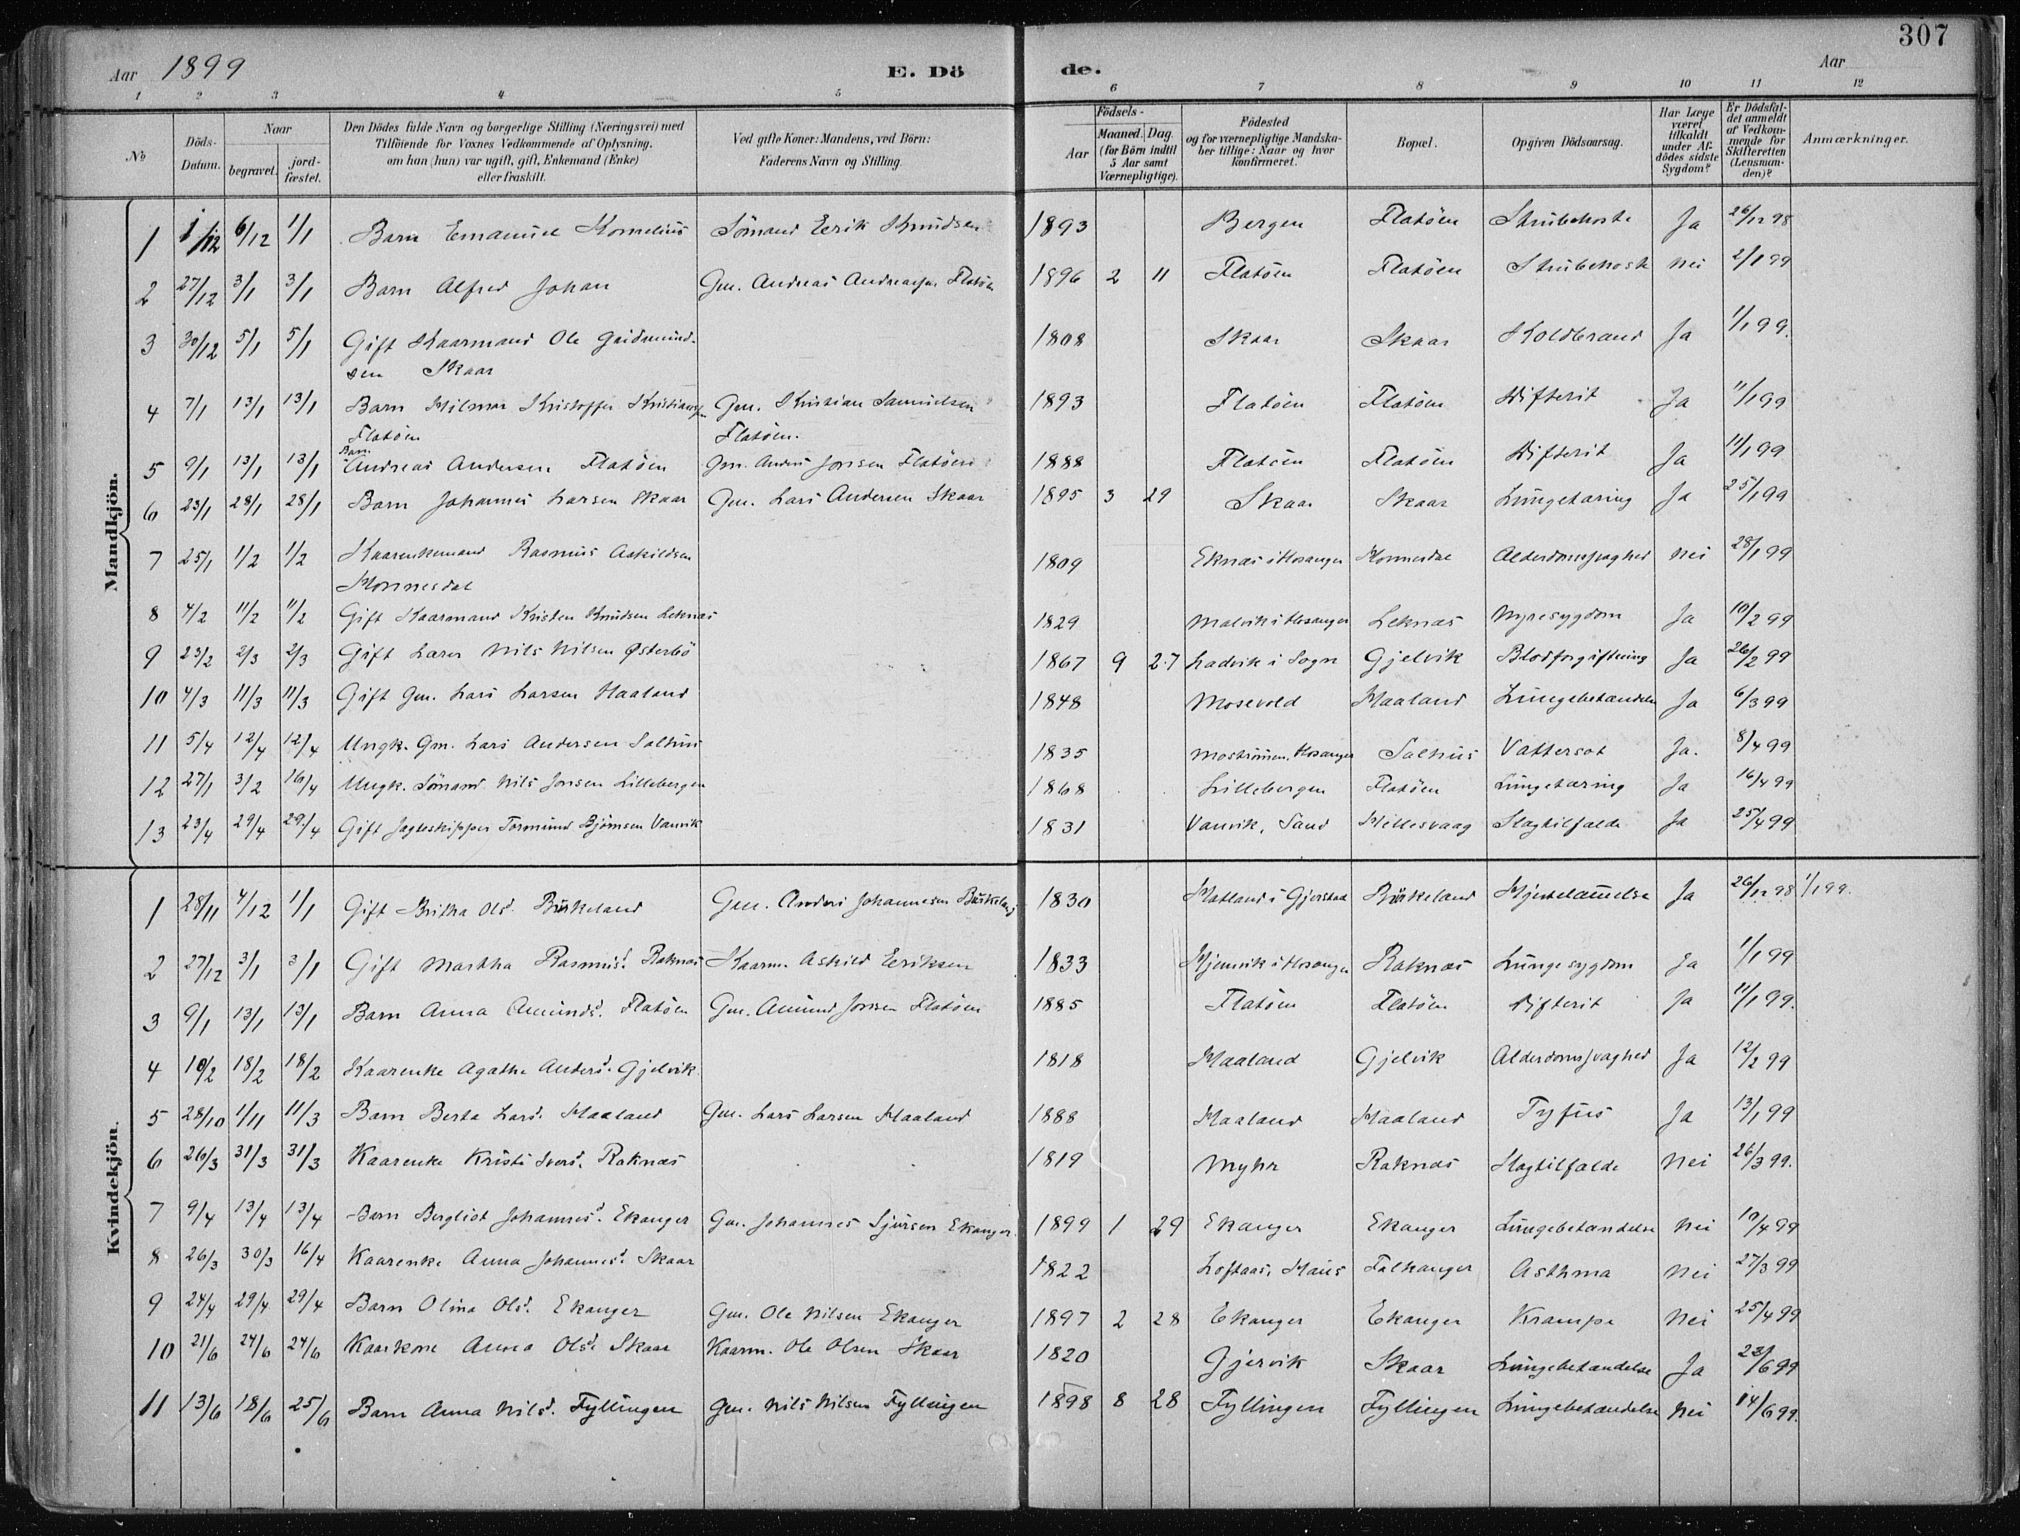 307
Aar 1899 E. Dö de. Aar
1 2 3 4 5 6 7 8 9 10 11 12
No
Döds-Datum.
Naar
begravet.
jord-fæstet.
Den Dödes fulde Navn og borgerlige Stilling (Næringsvei) med
Tilföiende for Voxnes Vedkommende af Oplysning,
om han (hun) var ugift, gift, Enkemand (Enke)
eller fraskilt.
Ved gifte Koner: Mandens, ved Börn:
Faderens Navn og Stilling.
Födsels-
Aar
Maaned. Dag.
(for Börn indtil
5 Aar samt
Værnepligtige).
Födested
og for værnepligtige Mandska-
ber tillige: Naar og hvor
konfirmeret.
Bopæl.
Opgiven Dödsaarsag.
Har Læge
været
tilkaldt
under Af-
dödes sidste
Sygdom?
Er Dödsfal-
det anmeldt
af Vedkom-
mende for
Skifteretten
(Lensman-
den)?
Anmærkninger.
Mandkjön.
1 1/12 6/12 1/1 Barn Emanuel Kornelius Sömand Eerik Knudsen 1893 Bergen Flatöen Strubehoste Ja 26/12 98
2 27/12 3/1 3/1 Barn Alfred Johan Gm. Andreas Andreassen Flatöen 1896 2 11 Flatöen Flatöen Strubehoste Nei 2/1 99
3 30/12 5/1 5/1 Gift Kaarmand Ole Gudmund- 1808 Skaar Skaar Koldbrand Ja 1/1 99.
sen Skaar
4 7/1 13/1 13/1 Barn Hilmar Kristoffer Kristiansen Gm. Kristian Samuelsen 1893 Flatöen Flatöen Difterit Ja 11/1 99
Flatöen Flatöen.
5 9/1 13/1 13/1 Barn Andreas Andersen Flatöen Gm. Anders Jonsen Flatöen 1888 Flatöen Flatöen Difterit Ja 11/1 99
6 23/1 28/1 28/1 Barn Johannes Larsen Skaar Gm. Lars Andersen Skaar 1895 3 29 Skaar Skaar Lungetæring Ja 25/1 99
7 25/1 1/2 1/2 Kaarenkemand Rasmus Askildsen 1809 Eknæs i Hosanger Konnesdal Alderdomssvaghed Nei 28/1 99
Konnesdal
8 4/2 11/2 11/2 Gift Kaarmand Kristen Knudsen Leknæs 1829 Malvik i Hosanger Leknæs Nyresygdom Ja 10/2 99
9 23/2 2/3 2/3 Gift Lærer Nils Nilsen Østerbö 1867 9 27 Ladvik i Sogn Gjelvik Blodforgiftning Ja 26/2 99
10 4/3 11/3 11/3 Gift Gm. Lars Larsen Haaland 1848 Mosevold Haaland Lungebetændelse Ja 6/3 99
11 5/4 12/4 12/4 Ungk. Gm. Lars Andersen Salhus 1835 Mostrømen, Hosanger Salhus Vattersot Ja. 8/4 99
12 27/1 3/2 16/4 Ungk. Sömand Nils Jonsen Lillebergen 1868 Lillebergen Flatöen Lungetæring Ja 16/4 99
13 23/4 29/4 29/4 Gift Jagteskipper Tormund Bjömsen Vanvik 1831 Vanvik, Sand Hillesvaag Slagtilfælde Ja 25/4 99
Kvindekjön.
1 28/11 4/12 1/1 Gift Britha Olsd. Birkeland Gm. Anders Johannesen Birkeland 1830 Hatland i Gjerstad Birkeland Hjertelammelse Ja 26/12 98 1/1 99.
2 27/12 3/1 3/1 Gift Martha Rasmusd. Raknæs Kaarm. Askild Eeriksen 1833 Hjemvik i Hosanger Raknæs Lungesygdom Ja 1/1 99
3 9/1 13/1 13/1 Barn Anna Amundsd. Flatöen Gm. Amund Jonsen Flatöen 1885 Flatöen Flatöen Difterit Ja 11/1 99.
4 10/2 18/2 18/2 Kaarenke Agathe Andersd. Gjelvik. 1818 Haaland Gjelvik Alderdomssvaghed Ja 12/2 99
5 28/10 1/11 11/3 Barn Berta Larsd. Haaland Gm. Lars Larsen Haaland 1888 Haaland Haaland Tyfus Ja 13/1 99
6 26/3 31/3 31/3 Kaarenke Kristi Iversd. Raknæs 1819 Myhr Raknæs Slagtilfælde Nei 26/3 99.
7 9/4 13/4 13/4 Barn Bergliot Johannesd. Ekanger Gm. Johannes Sjursen Ekanger. 1899 1 29 Ekanger Ekanger Lungebetændelse Nei 10/4 99
8 26/3 30/3 16/4 Kaarenke Anna Johannesd. Skaar 1822 Loftaas, Haus Falkanger Asthma Nei 27/3 99
9 24/4 29/4 29/4 Barn Olina Olsd. Ekanger Gm. Ole Nilsen Ekanger 1897 2 28 Ekanger Ekanger Krampe Nei 25/4 99
10 21/6 24/6 24/6 Kaarkone Anna Olsd. Skaar Kaarm. Ole Olsen Skaar 1820 Gjervik Skaar Lungebetændelse Ja 23/6 99
11 13/6 18/6 25/6 Barn Anna Nilsd. Fyllingen Gm. Nils Nilsen Fyllingen 1898 8 28 Fyllingen Fyllingen Lungebetændelse Nei 14/6 99.